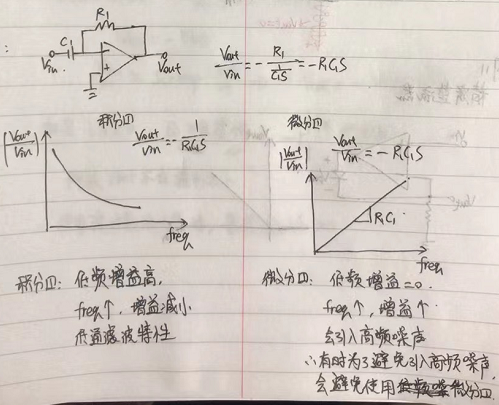 R1
C1
Vin
Vout
Vout/Vin = -R1/(1/C1S) = -R1C1S
积分口
Vout/Vin = -1/(R1C1S)
|Vout/Vin|
freq
微分口
Vout/Vin = -R1C1S
|Vout/Vin|
R1C1
freq
积分口: 低频增益高,
freq↑, 增益减小
低通滤波特性
微分口: 低频增益=0.
freq↑, 增益↑
会引入高频噪声
∴有时为了避免引入高频噪声,
会避免使用微分口.